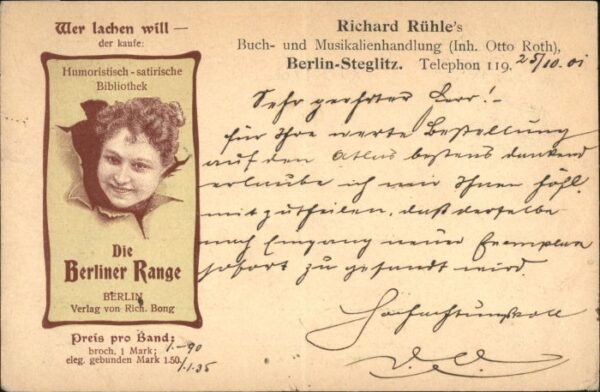 Wer lachen will —
der kaufe:
Humoristisch-satirische
Bibliothek
Die
Berliner Range
BERLIN
Verlag von Rich. Bong
Preis pro Band:
broch. 1 Mark; 1.-90
eleg. gebunden Mark 1.50. 1.35
Richard Rühle's
Buch- und Musikalienhandlung (Inh. Otto Roth),
Berlin-Steglitz. Telephon 119. 25/10. 01
Sehr geehrter Herr!-
für Ihre werte Bestellung
auf den Atlas bestens dankend
erlaube ich mir Ihnen höfl.
mitzutheilen, daß derselbe
nach Eingang neuer Exemplare
sofort zu gesandt wird.
Hochachtungsvoll